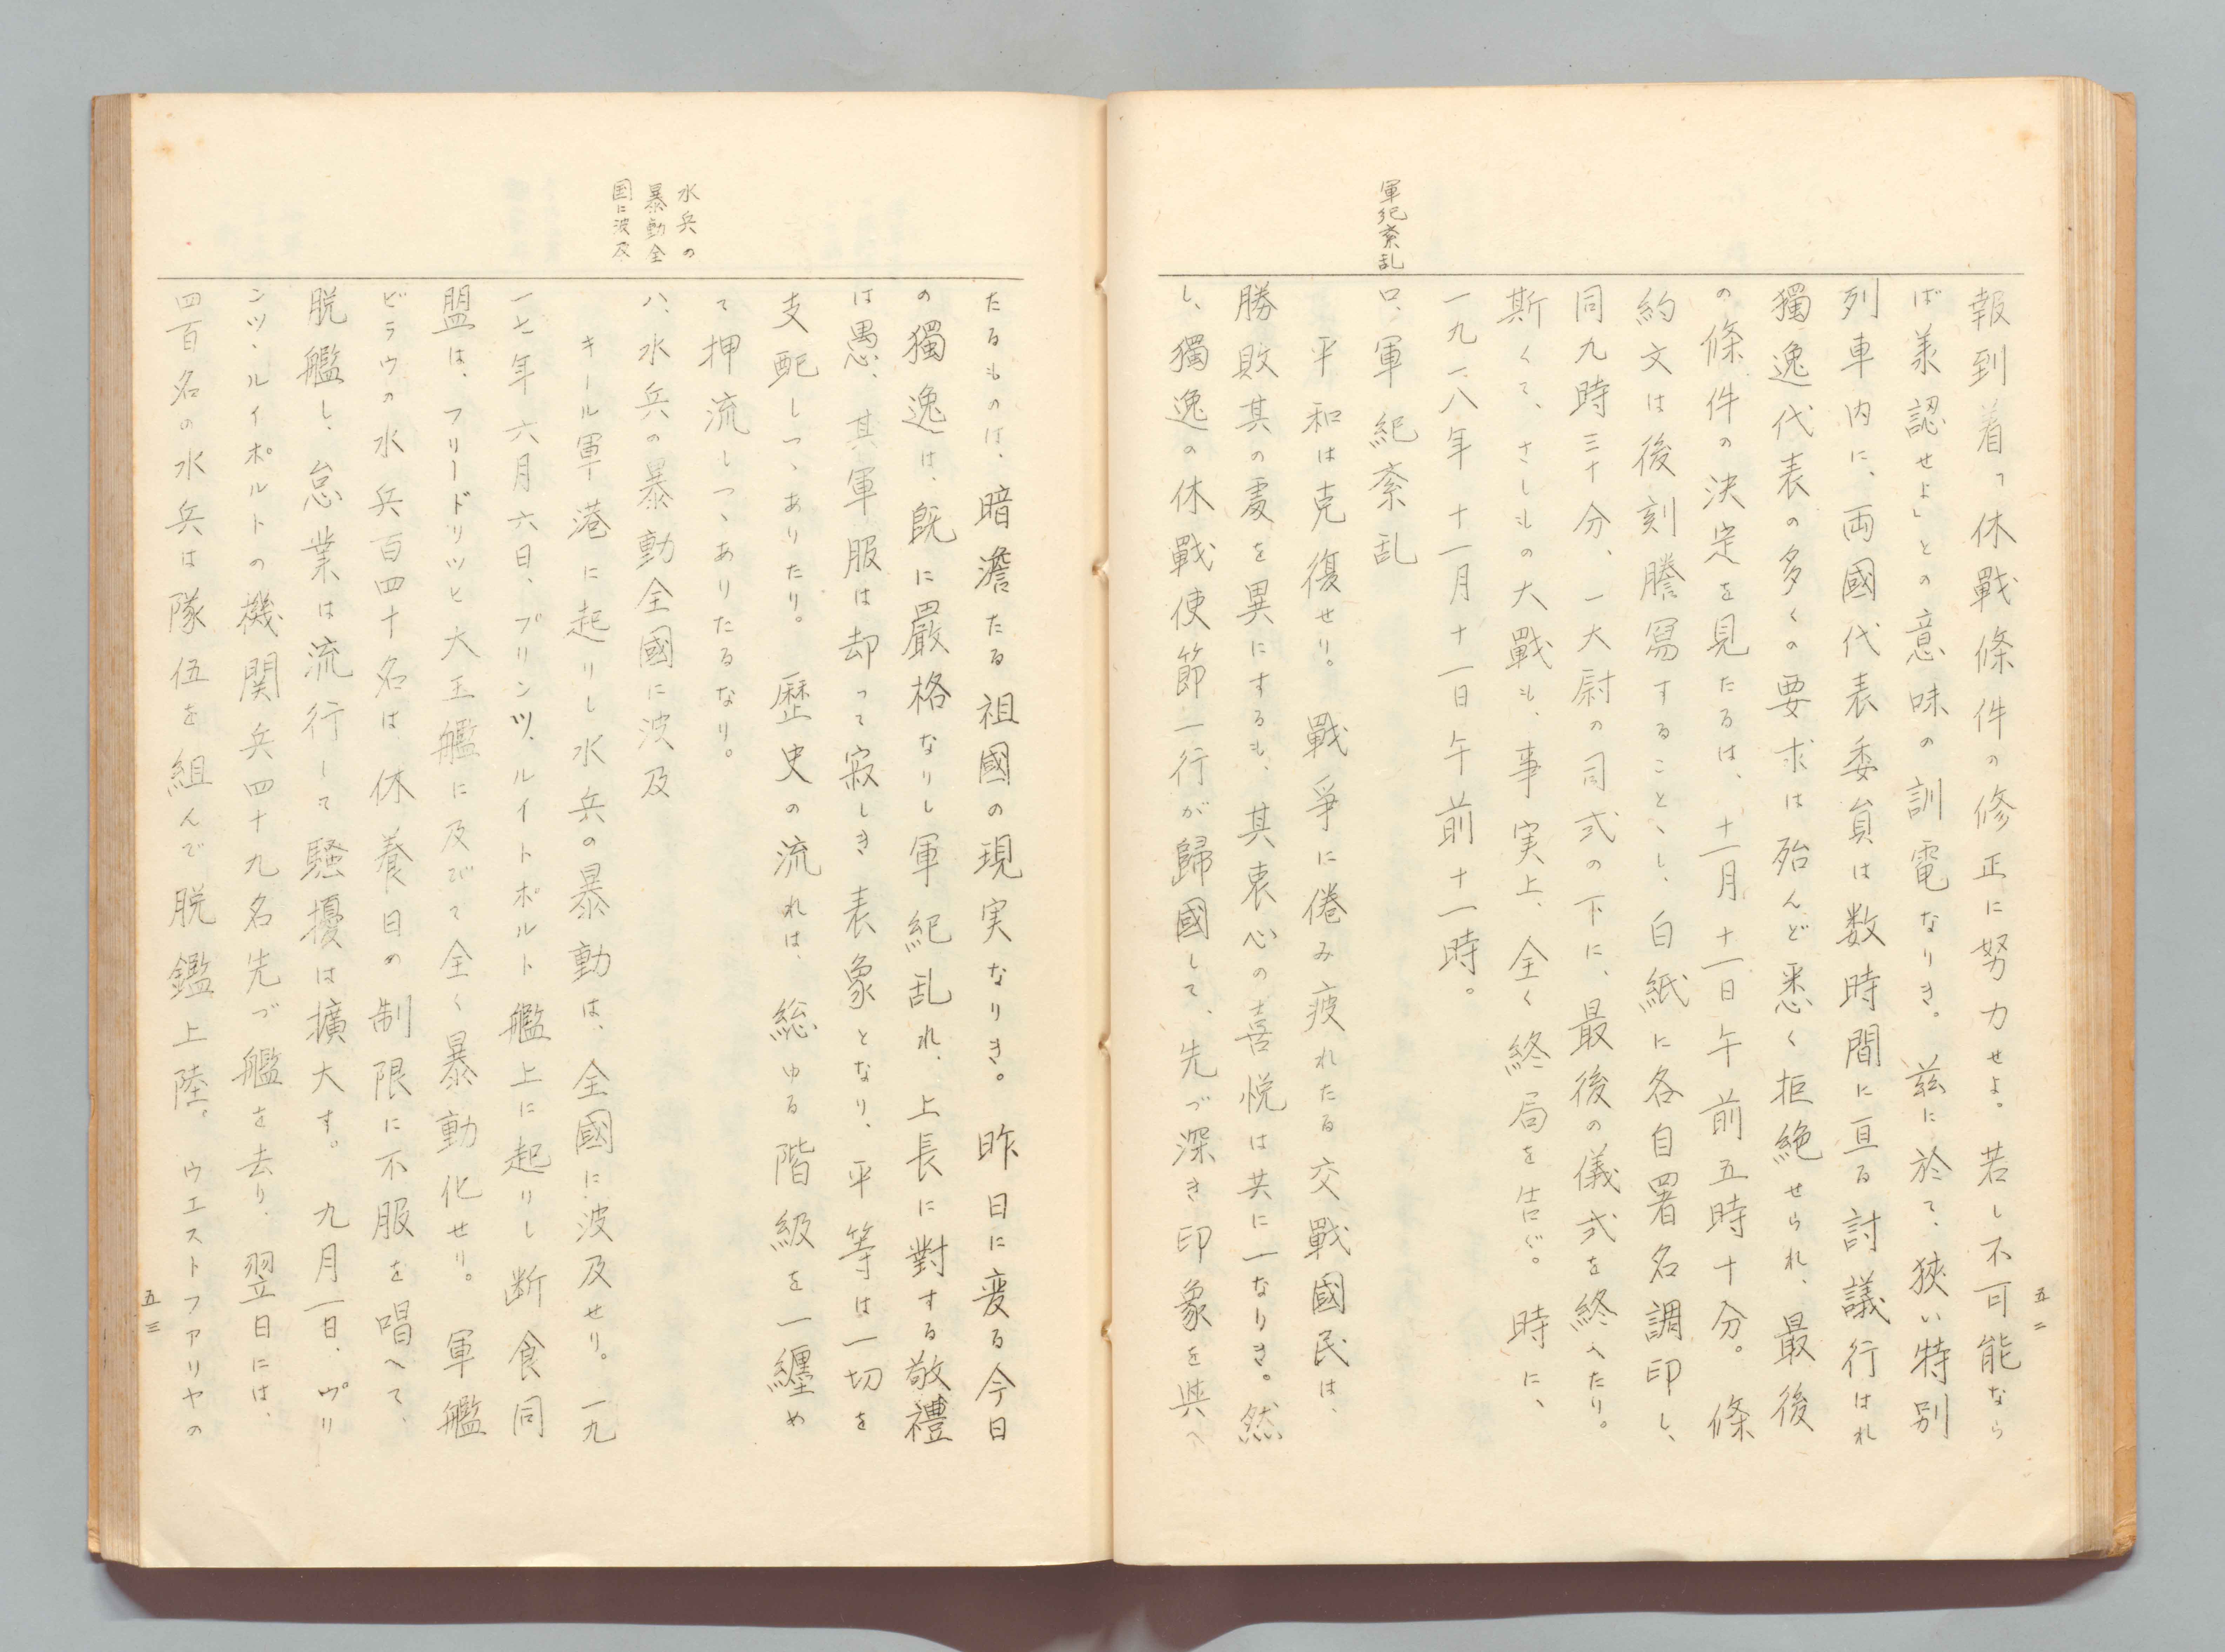 五二
軍紀紊乱
報到着つ休戰條件の修正に努力せよ。若し不可能なら
ば羕認せよ」との意味の訓電なりき。茲に於て、狹い特别
列車内に、両國代表委員は数時間に亘る討議行はれ
獨逸代表の多くの要求は殆んど悉く拒絶せられ、最後
の條件の決定を見たるは、十一月十一日午前五時十分。條
約文は後刻謄冩することゝし、白紙に各自署名調印し、
同九時三十分、一大尉の司式の下に、最後の儀式を終へたり。
斯くて、さしもの大戰も、事実上、全く終局を告ぐ。時に、
一九一八年十一月十一日午前十一時。
ロ、軍紀紊乱
平和は克復せり。戰爭に倦み疲れたる交戰國民は、
勝敗其の處を異にするも、其衷心の喜悦は共に一なりき。然
し、獨逸の休戰使節一行が歸國して、先づ深き印象を與へ
水兵の
暴動全
国に波及
たるものは、暗澹たる祖國の現実なりき。昨日に変る今日
の獨逸は、既に嚴格なりし軍紀乱れ、上長に對する敬禮
は愚、其軍服は却って寂しき表象となり、平等は一切を
支配しつゝありたり。歴史の流れは、総ゆる階級を一纏め
て押流しつゝありたるなり。
八、水兵の暴動全國に波及
キール軍港に起りし水兵の暴動は、全國に波及せり。一九
一七年六月六日、プリンツ、ルイトポルト艦上に起りし断食同
盟は、フリードリツヒ大王艦に及びて全く暴動化せり。軍艦
ビラウの水兵百四十名は、休養日の制限に不服を唱へて、
脱艦し、怠業は流行して騷擾は擴大す。九月一日、プリ
ンツ、ルイポルトの機関兵四十九名先づ艦を去り、翌日には、
四百名の水兵は隊伍を組んで脱鑑上陸。ウエストファリヤの
五三